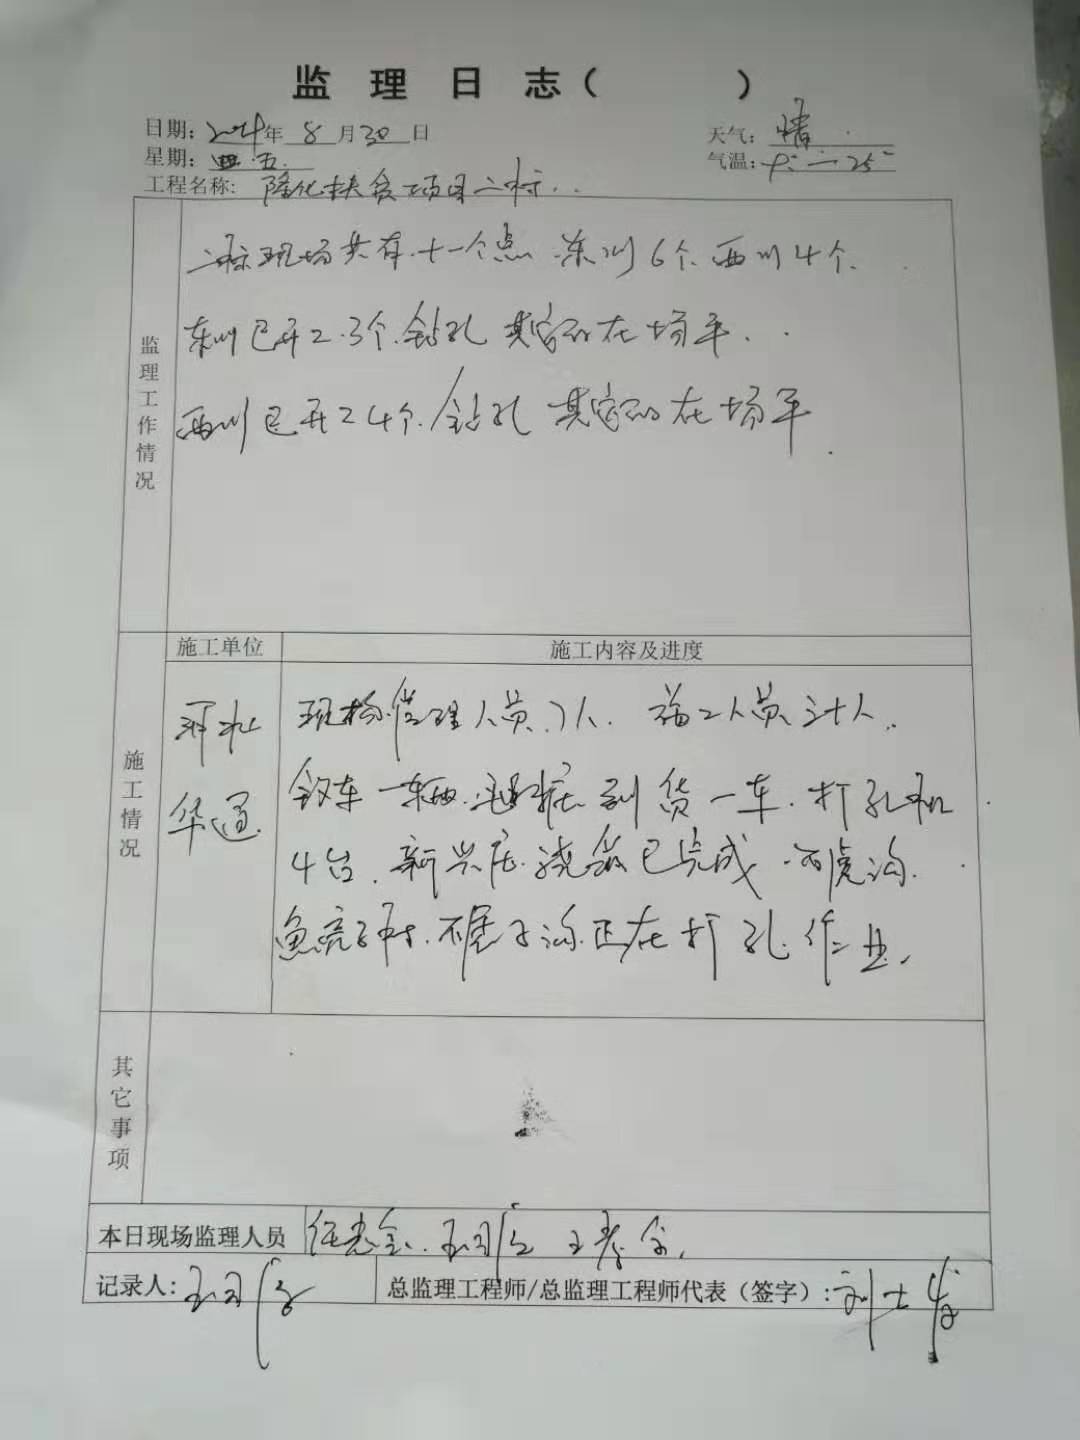 监 理 日 志 （ ）
日期：2024年 8 月 30 日
天气：晴
星期：四 五
气温： — 25°
工程名称：隆化扶贫项目二标
监理工作情况
二标现场共有十一个点 东川6个 西川4个
东川已开工3个 钻孔 其它的在场平
西川已开工4个 钻孔 其它的在场平
施工情况
施工单位 施工内容及进度
河北华通
现场管理人员7人 施工人员三十人
车一辆 到货一车 打孔机
4台 新兴庄 浇筑已完成 虎沟
鱼亮子 子沟 正在打孔作业
其它事项
本日现场监理人员
记录人：
总监理工程师/总监理工程师代表（签字）：刘士